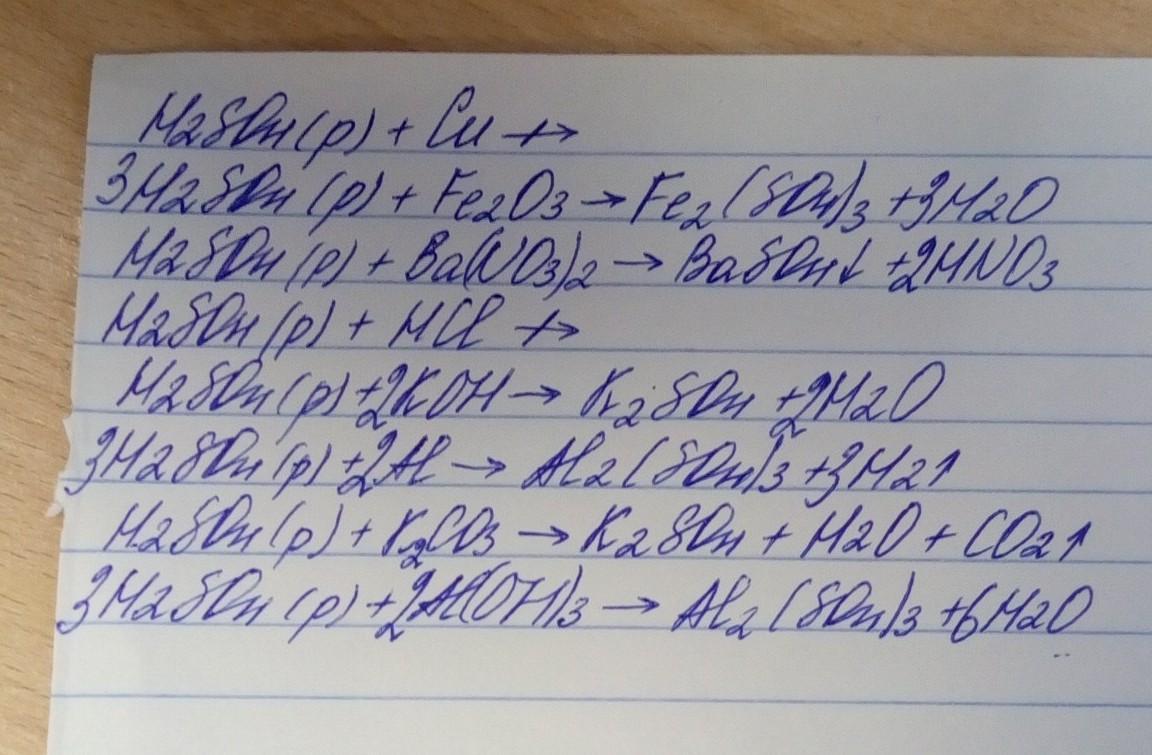 H2SO4(р) + Cu ↛
3H2SO4(р) + Fe2O3 → Fe2(SO4)3 + 3H2O
H2SO4(р) + Ba(NO3)2 → BaSO4↓ + 2HNO3
H2SO4(р) + HCl ↛
H2SO4(р) + 2KOH → K2SO4 + 2H2O
3H2SO4(р) + 2Al → Al2(SO4)3 + 3H2↑
H2SO4(р) + K2CO3 → K2SO4 + H2O + CO2↑
3H2SO4(р) + 2Al(OH)3 → Al2(SO4)3 + 6H2O